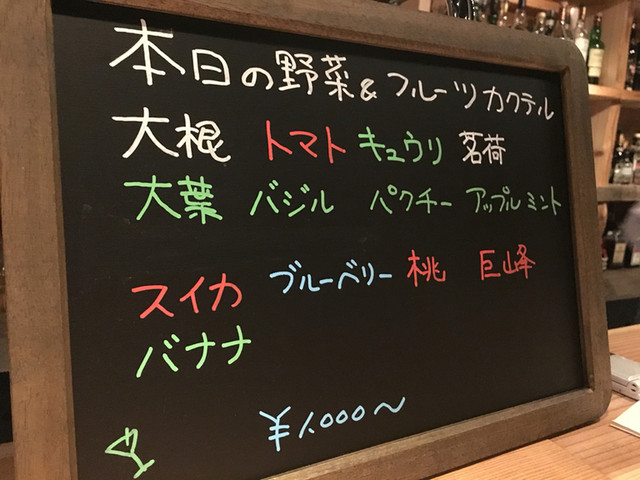 本日の野菜&フルーツカクテル
大根 トマト キュウリ 茗荷
大葉 バジル パクチー アップルミント
スイカ ブルーベリー 桃 巨峰
バナナ
¥1,000〜